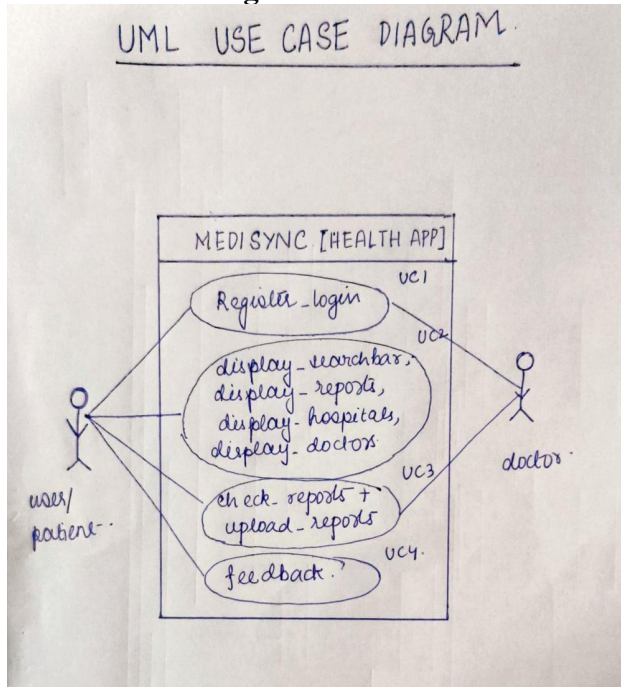 UML USE CASE DIAGRAM.
MEDISYNC [HEALTH APP]
UC1
Register_login
UC2
display_searchbar,
display_reports,
display_hospitals,
display_doctors
UC3
check_reports +
upload_reports
UC4.
feedback.
user/
patient.
doctor.